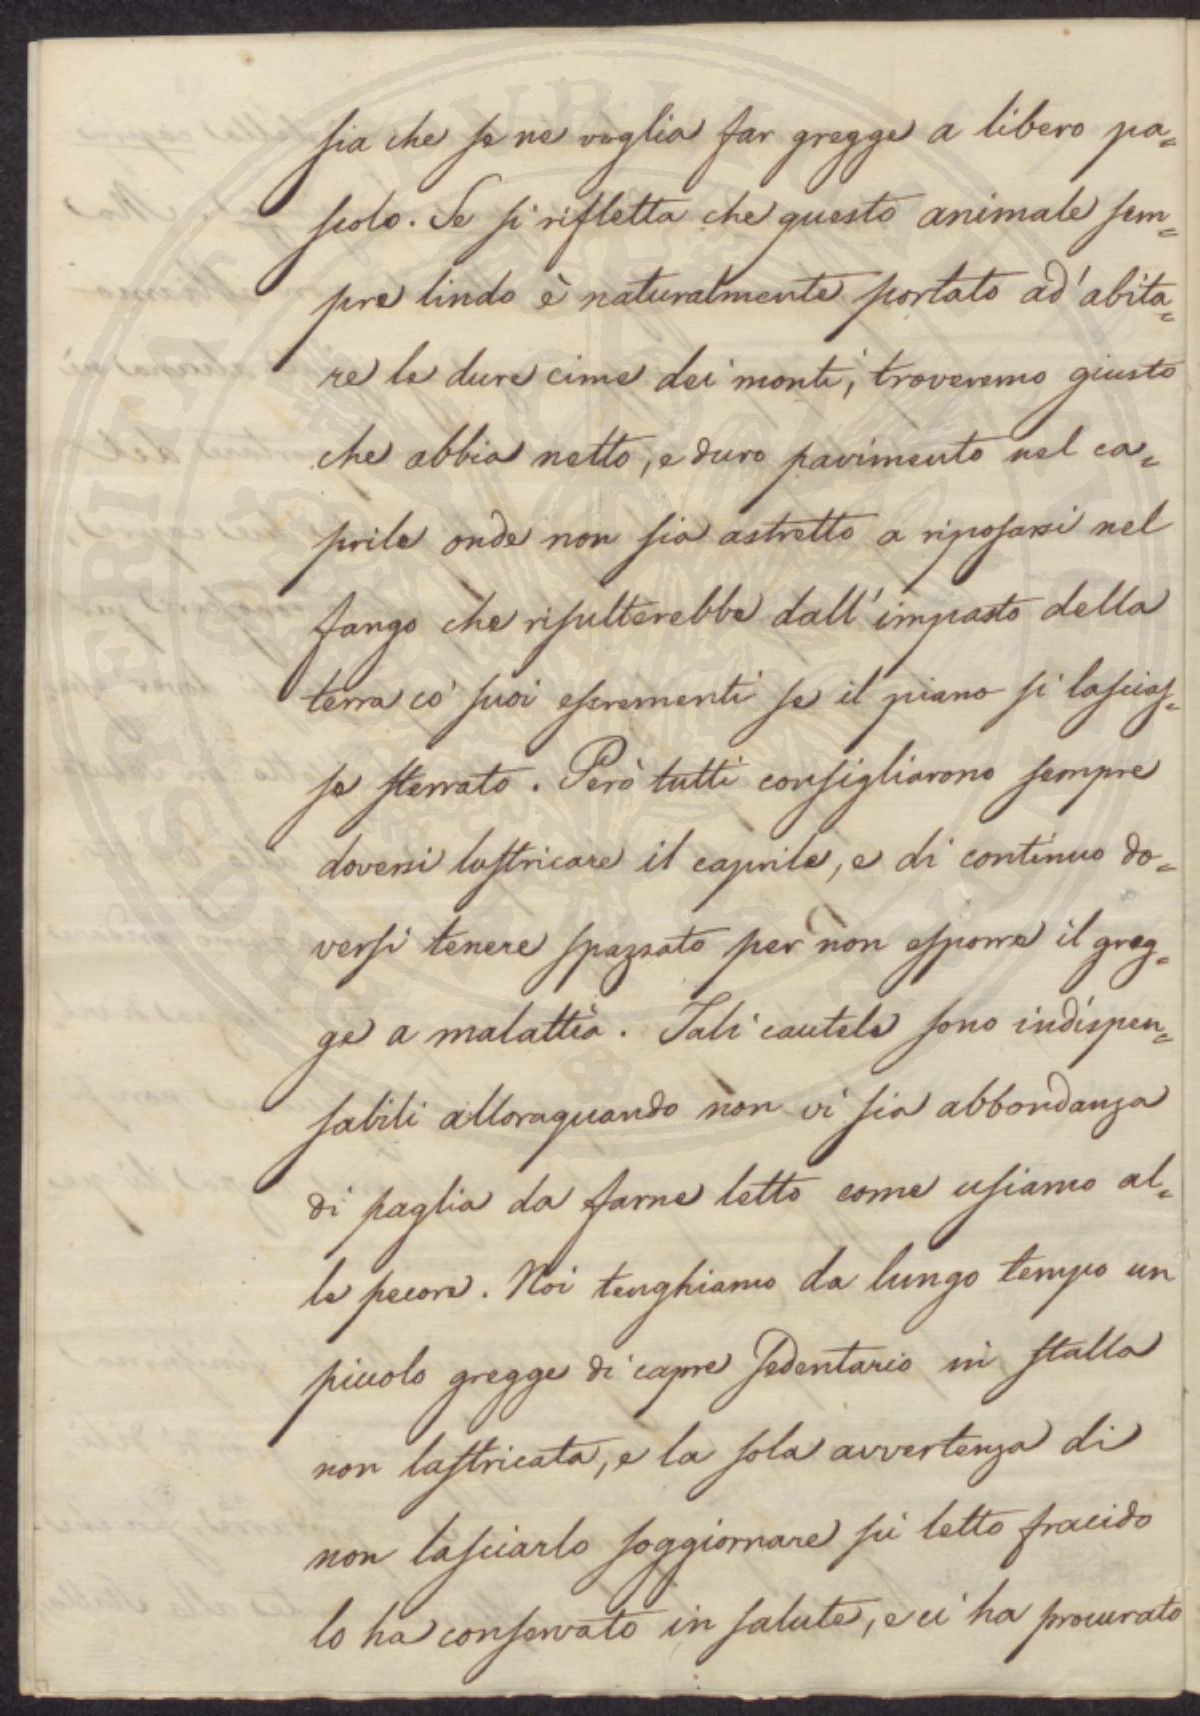 sia che se ne voglia far gregge a libero pa=
scolo. Se si rifletta che questo animale sem=
pre lindo è naturalmente portato ad' abita=
re le dure cime dei monti, troveremo giusto
che abbia netto, e duro pavimento nel ca=
prile onde non sia astretto a riposarsi nel
fango che risulterebbe dall' impasto della
terra co' suoi escrementi se il piano si lascias=
se sterrato. Però tutti consigliarono sempre
doversi lastricare il caprile, e di continuo do=
versi tenere spazzato per non esporre il greg=
ge a malattia. Tali cautele sono indispen=
sabili alloraquando non vi sia abbondanza
di paglia da farne letto come usiamo al=
le pecore. Noi tenghiamo da lungo tempo un
piccolo gregge di capre sedentario in stalla
non lastricata, e la sola avvertenza di
non lasciarlo soggiornare su letto fracido
lo ha conservato in salute, e ci ha procurato